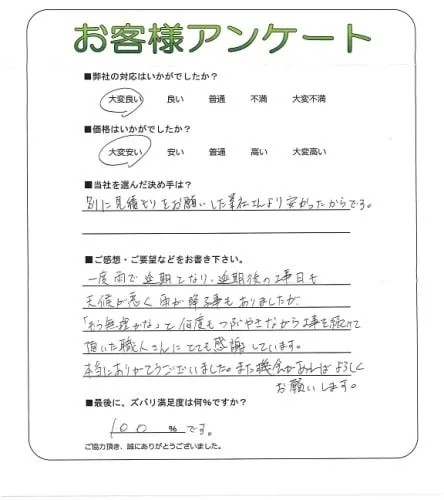 お客様アンケート
■弊社の対応はいかがでしたか?
大変良い 良い 普通 不満 大変不満
■価格はいかがでしたか?
大変安い 安い 普通 高い 大変高い
■当社を選んだ決め手は?
別に見積もりをお願いした業社さんより安かったからです。
■ご感想・ご要望などをお書き下さい。
一度雨で延期となり、延期後の工事日も
天候が悪く雨が降る事もありましたが
「もう無理かな」と何度もつぶやきながら工事を続けて
頂いた職人さんにとても感謝しています。
本当にありがとうございました。また機会があればよろしく
お願いします。
■最後に、ズバリ満足度は何%ですか?
100 %です。
ご協力頂き、誠にありがとうございました。